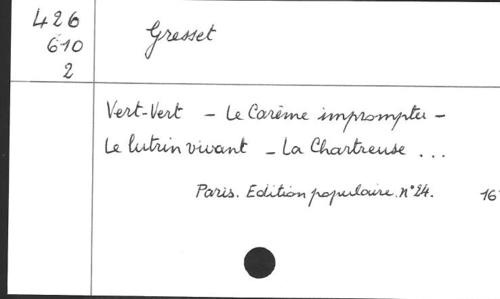 426
610
2
Gresset
Vert-Vert - Le Carème impromptu -
Le lutrin vivant - La Chartreuse ...
Paris. Edition populaire. n° 24.
16